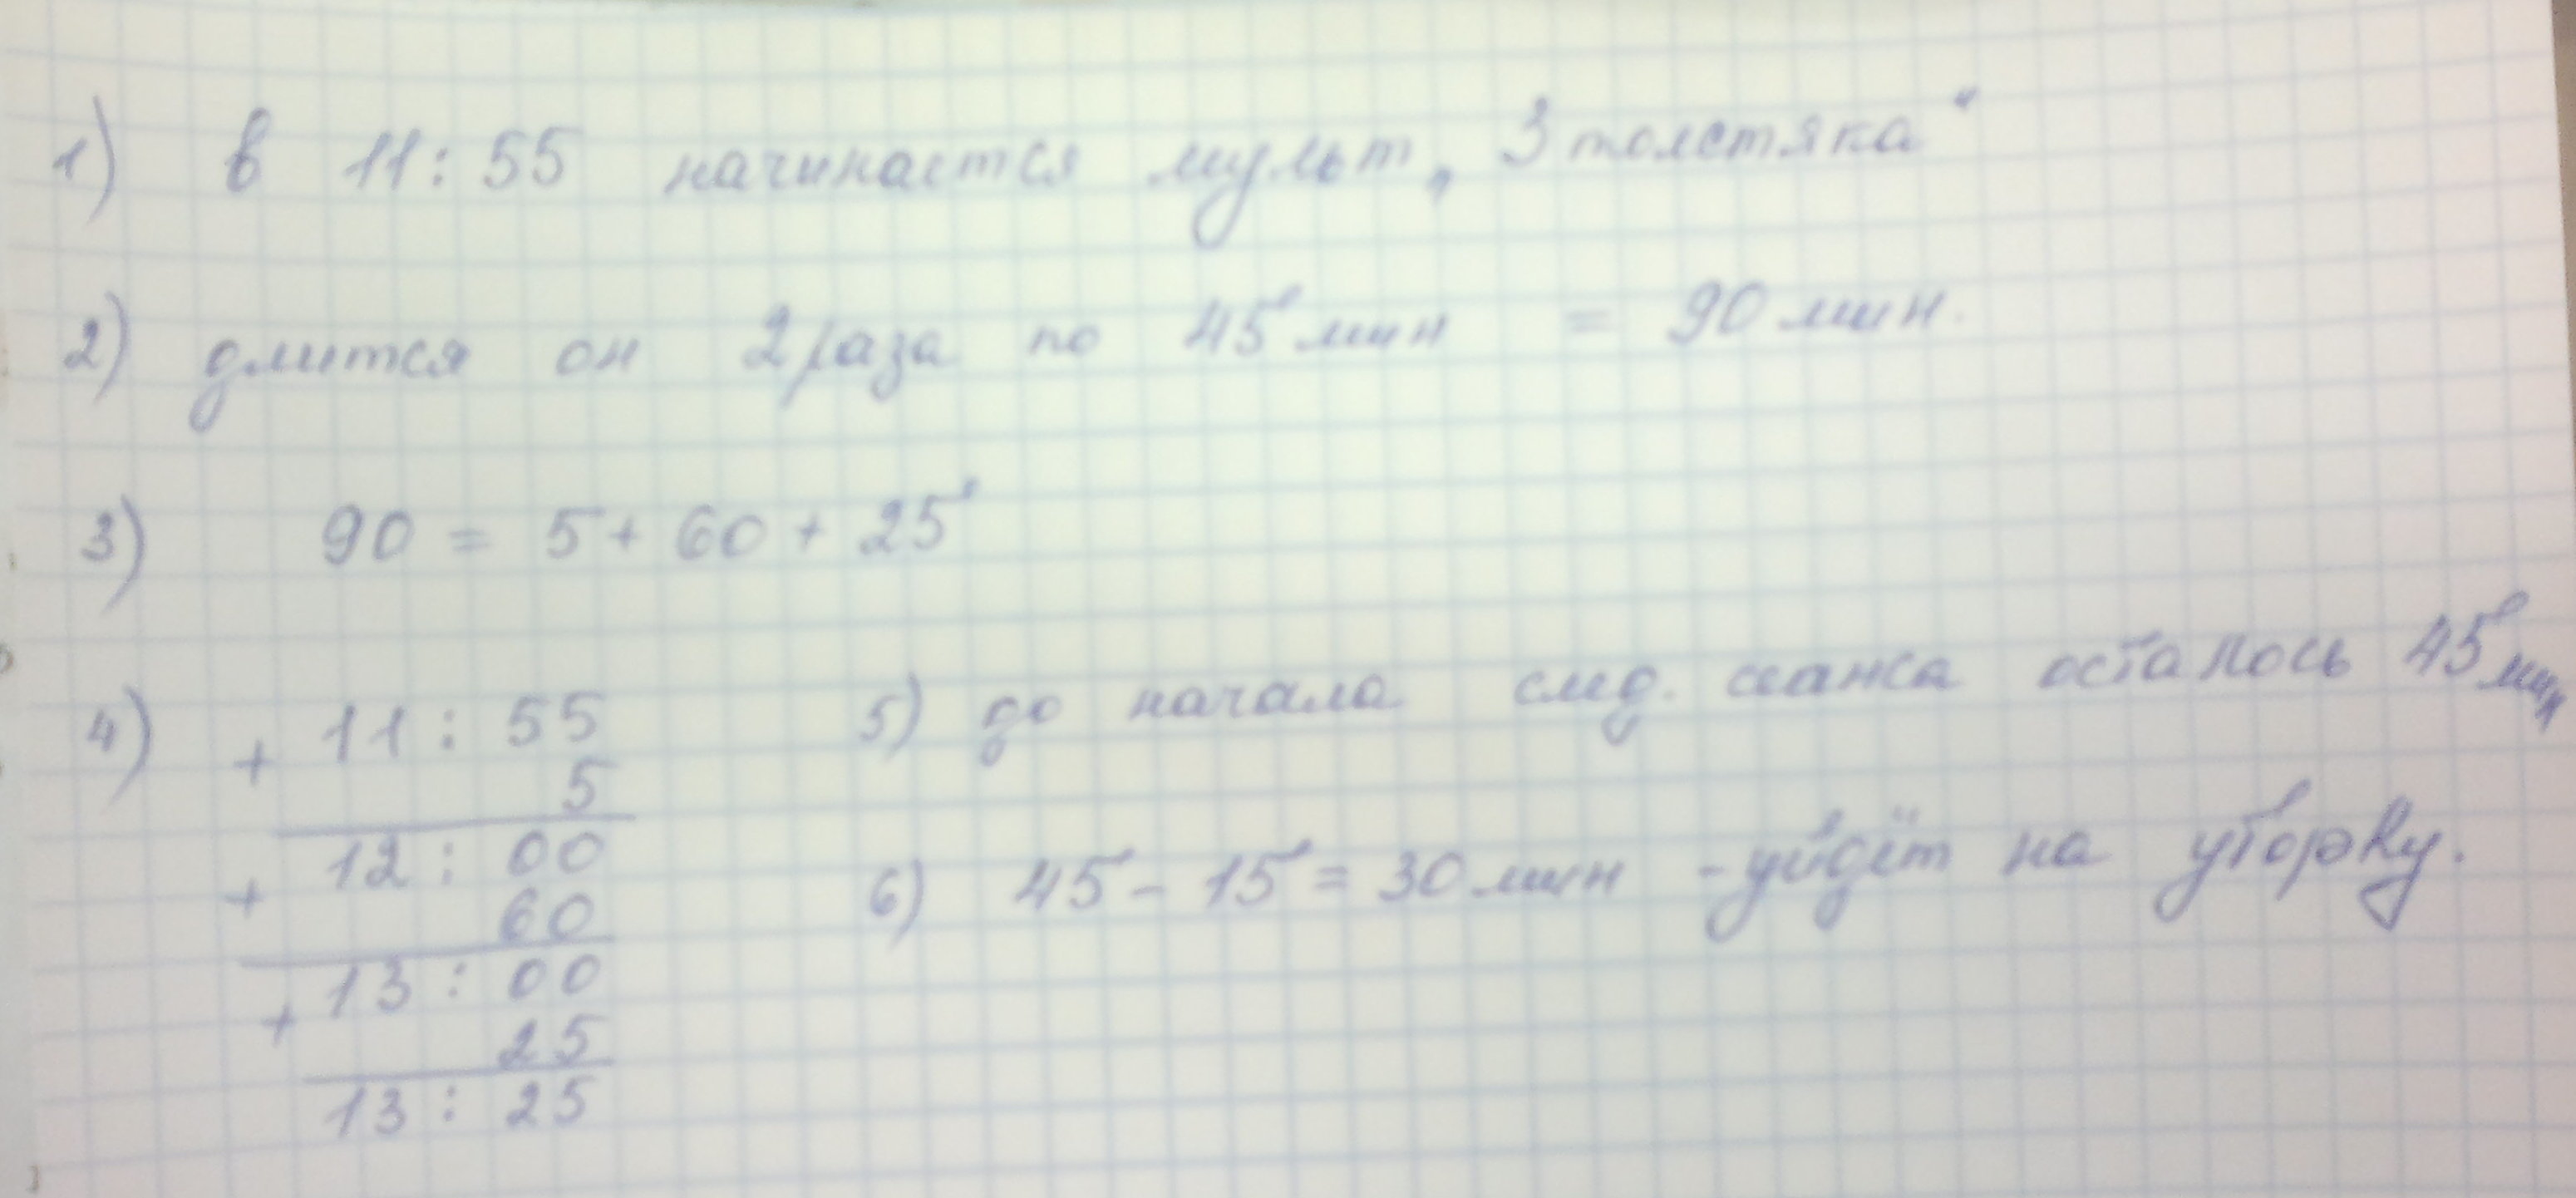 1) в 11:55 начинается мульт „3 толстяка“
2) длится он 2 раза по 45 мин = 90 мин.
3) 90 = 5 + 60 + 25
4) + 11 : 55
5
+ 12 : 00
60
+ 13 : 00
25
13 : 25
5) до начала след. сеанса осталось 45 мин
6) 45 - 15 = 30 мин - уйдёт на уборку.